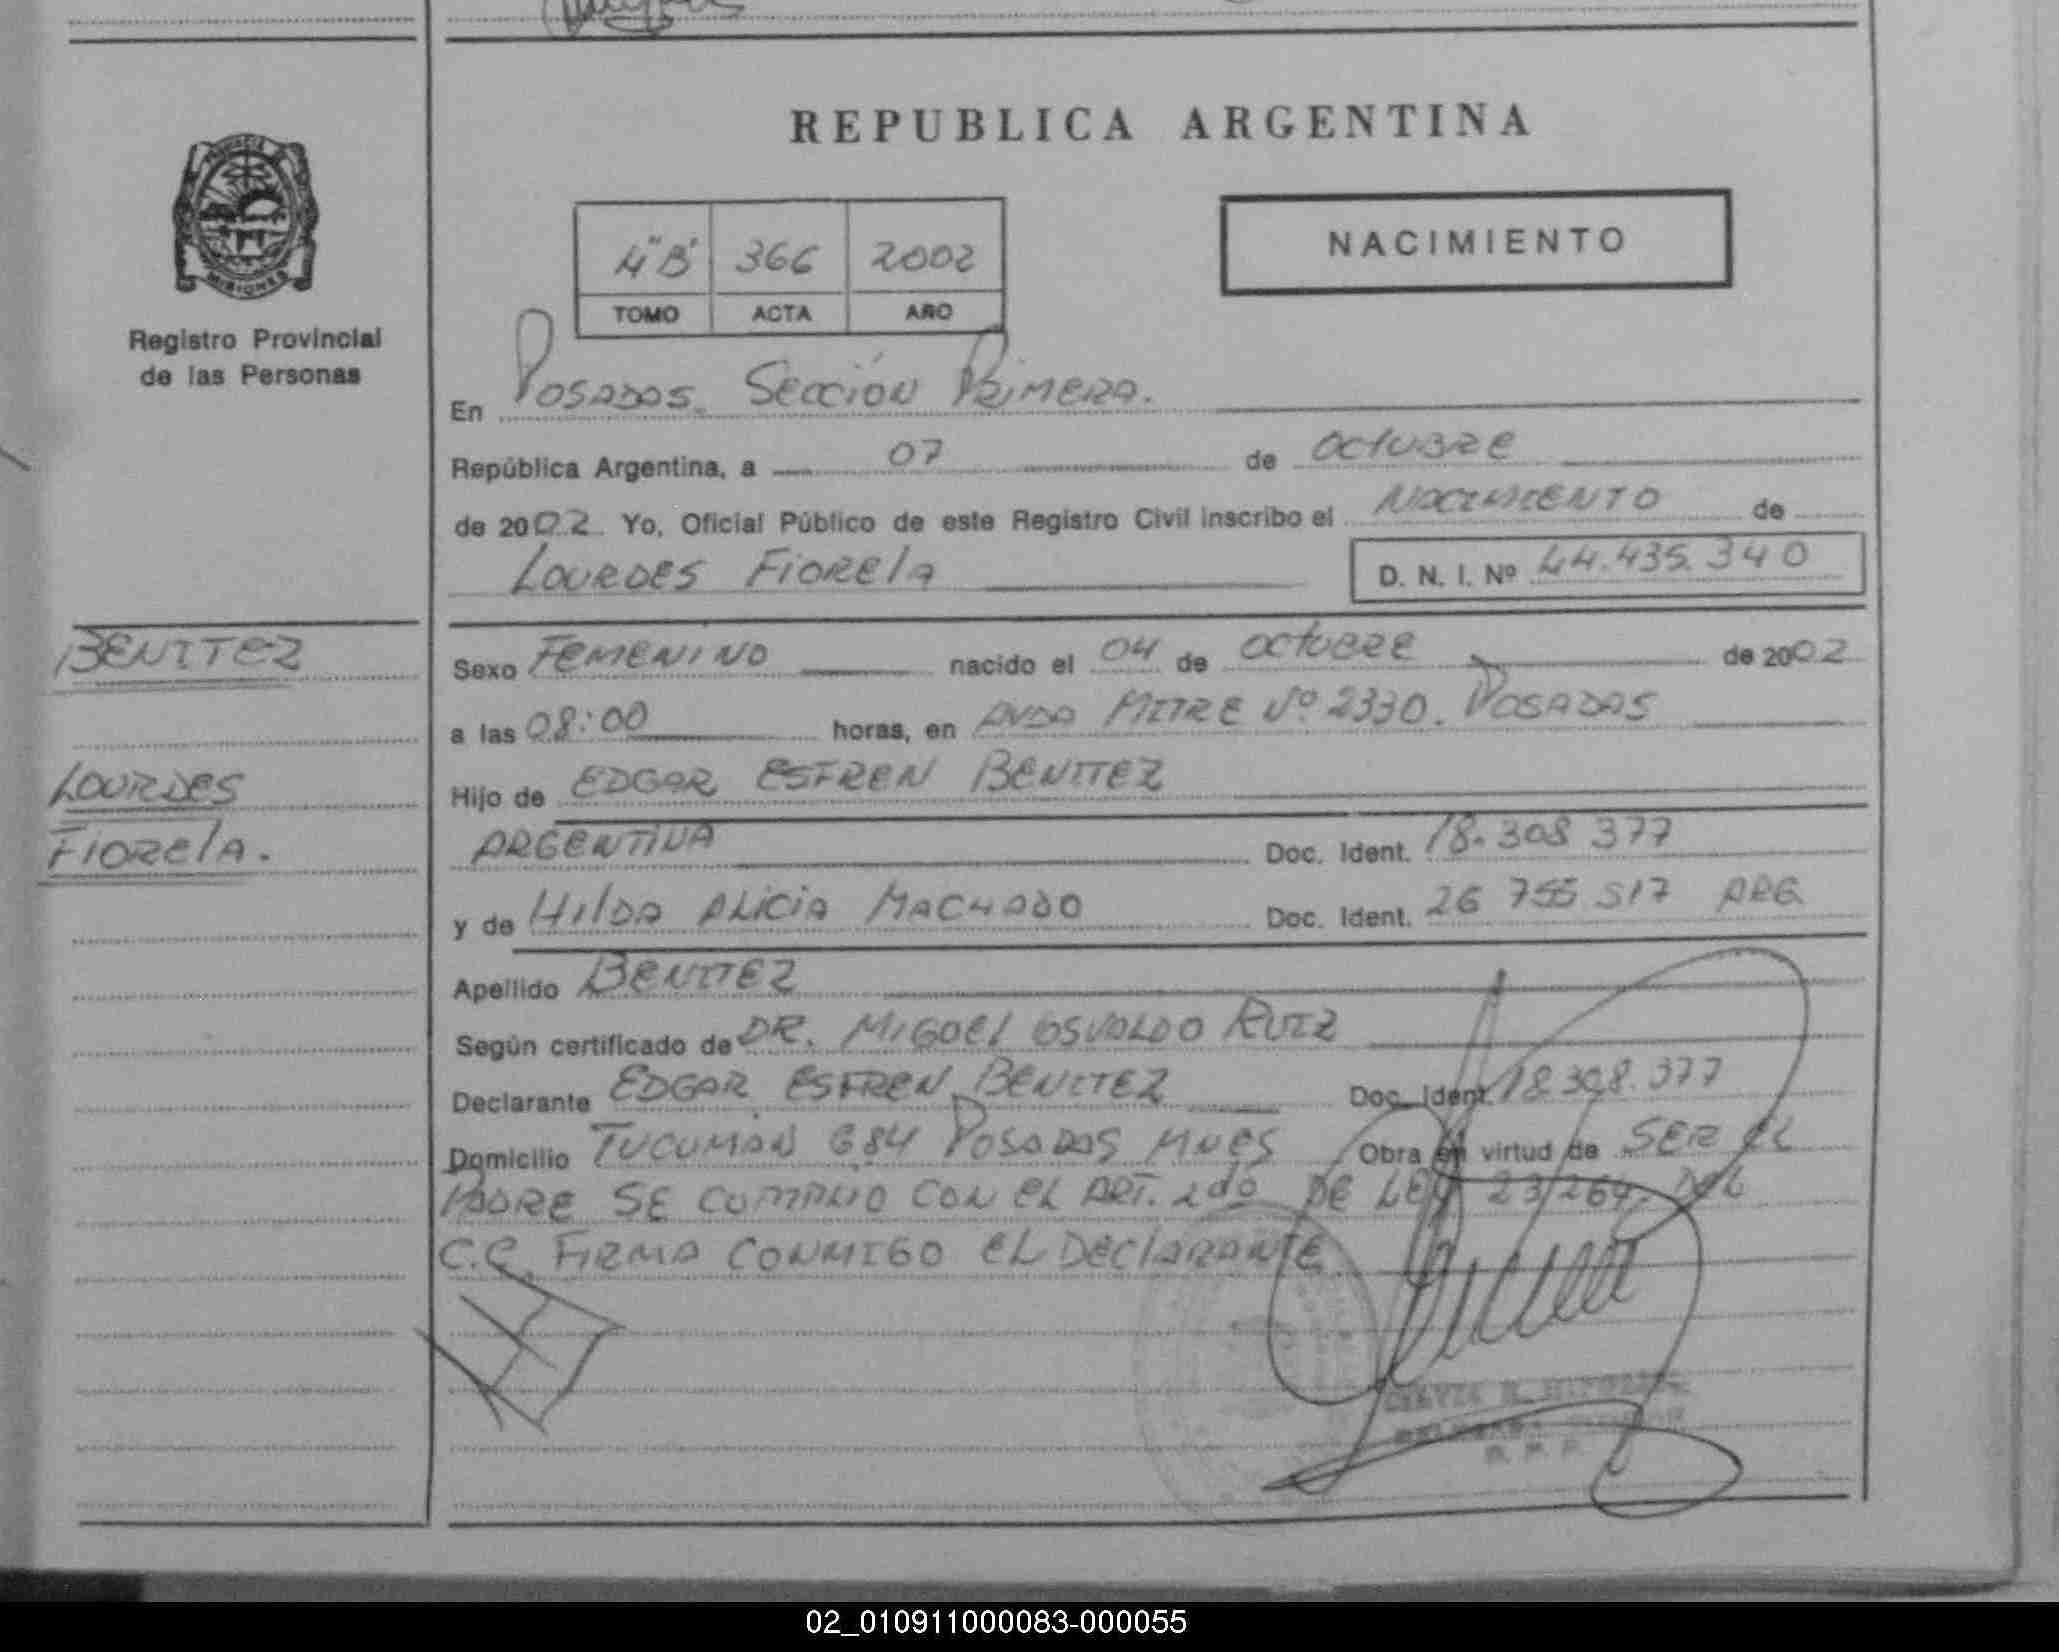 REPUBLICA ARGENTINA
PROVINCIA DE
MISIONES
Registro Provincial
de las Personas
4"B" 366 2002
TOMO ACTA AÑO
NACIMIENTO
En POSADAS. SECCIÓN PRIMERA.
República Argentina, a 07 de OCTUBRE
de 2002. Yo, Oficial Público de este Registro Civil inscribo el NACIMIENTO de
LOURDES FIORELA
D. N. I. Nº 44.435.340
BENITEZ
LOURDES
FIORELA.
Sexo FEMENINO nacido el 04 de OCTUBRE de 2002
a las 08:00 horas, en AVDA MITRE Nº 2330. POSADAS
Hijo de EDGAR ESFREN BENITEZ
ARGENTINA Doc. Ident. 18.308 377
y de HILDA ALICIA MACHADO Doc. Ident. 26 755 517 ARG
Apellido BENITEZ
Según certificado de DR. MIGUEL OSVALDO RUIZ
Declarante EDGAR ESFREN BENITEZ Doc. Ident. 18.308.377
Domicilio TUCUMAN 684 POSADAS MNES Obra en virtud de SER EL
PADRE SE CUMPLIO CON EL ART. 2do DE LEY 23/264. DEL
C.C. FIRMA CONMIGO EL DECLARANTE
02_010911000083-000055